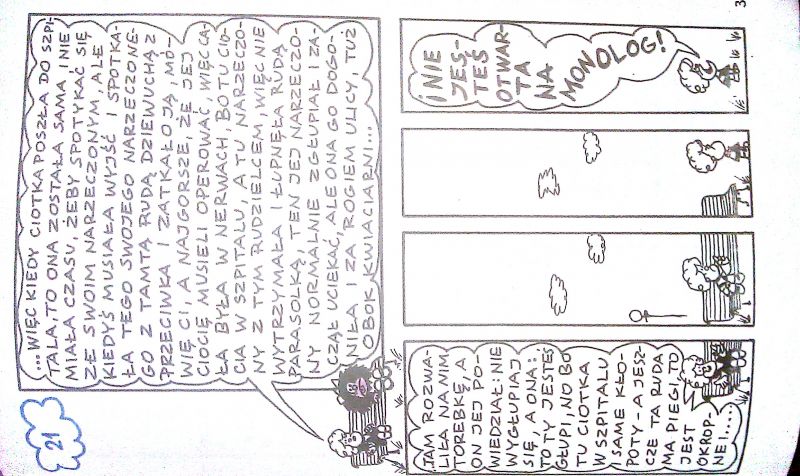 21
... WIĘC KIEDY CIOTKA POSZŁA DO SZPI-
TALA, TO ONA ZOSTAŁA SAMA, I NIE
MIAŁA CZASU, ŻEBY SPOTYKAĆ SIĘ
ZE SWOIM NARZECZONYM, ALE
KIEDYŚ MUSIAŁA WYJŚĆ I SPOTKA-
ŁA TEGO SWOJEGO NARZECZONE-
GO Z TAMTĄ RUDĄ DZIEWUCHĄ Z
PRZECIWKA I ZATKAŁO JĄ, MÓ-
WIĘ CI, A NAJGORSZE, ŻE JEJ
CIOCIĘ MUSIELI OPEROWAĆ, WIĘC CA-
ŁA BYŁA W NERWACH, BO TU CIO-
CIA W SZPITALU, A TU NARZECZO-
NY Z TYM RUDZIELCEM, WIĘC NIE
WYTRZYMAŁA I ŁUPNĘŁA RUDĄ
PARASOLKĄ, TEN JEJ NARZECZO-
NY NORMALNIE ZGŁUPIAŁ I ZA-
CZĄŁ UCIEKAĆ, ALE ONA GO DOGO-
NIŁA I ZA ROGIEM ULICY, TUŻ
OBOK KWIACIARNI...
TAM ROZWA-
LIŁA NA NIM
TOREBKĘ, A
ON JEJ PO-
WIEDZIAŁ: NIE
WYGŁUPIAJ
SIĘ, A ONA:
TO TY JESTEŚ
GŁUPI, NO BO
TU CIOTKA
W SZPITALU
I SAME KŁO-
POTY - A JESZ-
CZE TA RUDA
MA PIEGI, TO
JEST
OKROP-
NE I.....
I NIE
JES-
TEŚ
OTWAR-
TA
NA
MONOLOG!
3